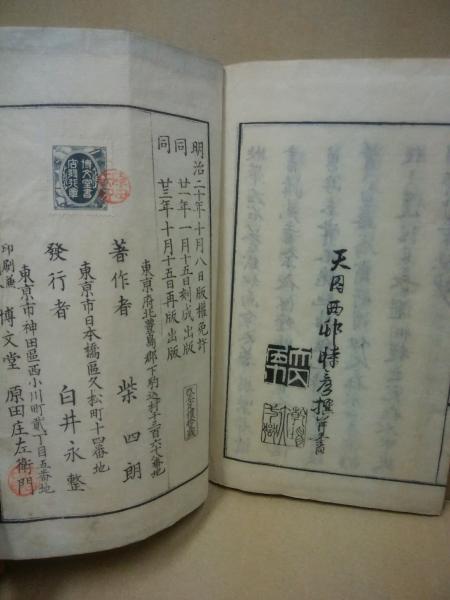 天囚西邨時彦撰并書
明治二十年十月八日版權免許
同 廿一年一月十五日刻成出版
同 廿二年十月十五日再版出版
東京府北豊島郡下駒込村十三百六十八番地
著作者 柴四朗
東京市日本橋區久松町十四番地
發行者 白井永整
東京市神田區西小川町貳丁目五番地
印刷兼 博文堂 原田庄左衛門